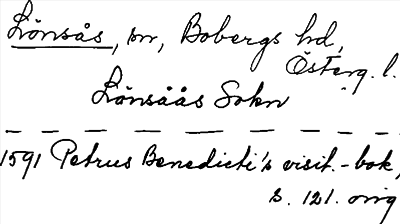 Lönsås, sn, Bobergs hd,
Österg. l.
Lönsåås Sokn
1591 Petrus Benedicti's visit.-bok,
s. 121. orig